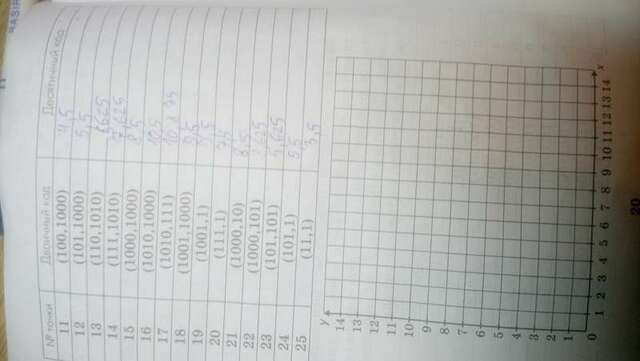 № точки Двоичный код Десятичный код
11 (100,1000) 4,5
12 (101,1000) 5,5
13 (110,1010)
14 (111,1010) 7,625
15 (1000,1000) 8,5
16 (1010,1000) 10,5
17 (1010,111)
18 (1001,1000) 9,5
19 (1001,1)
20 (111,1) 7,5
21 (1000,10) 8,5
22 (1000,101)
23 (101,101) 5,625
24 (101,1) 5,5
25 (11,1) 3,5
y
14
13
12
11
10
9
8
7
6
5
4
3
2
1
0 1 2 3 4 5 6 7 8 9 10 11 12 13 14 x
20